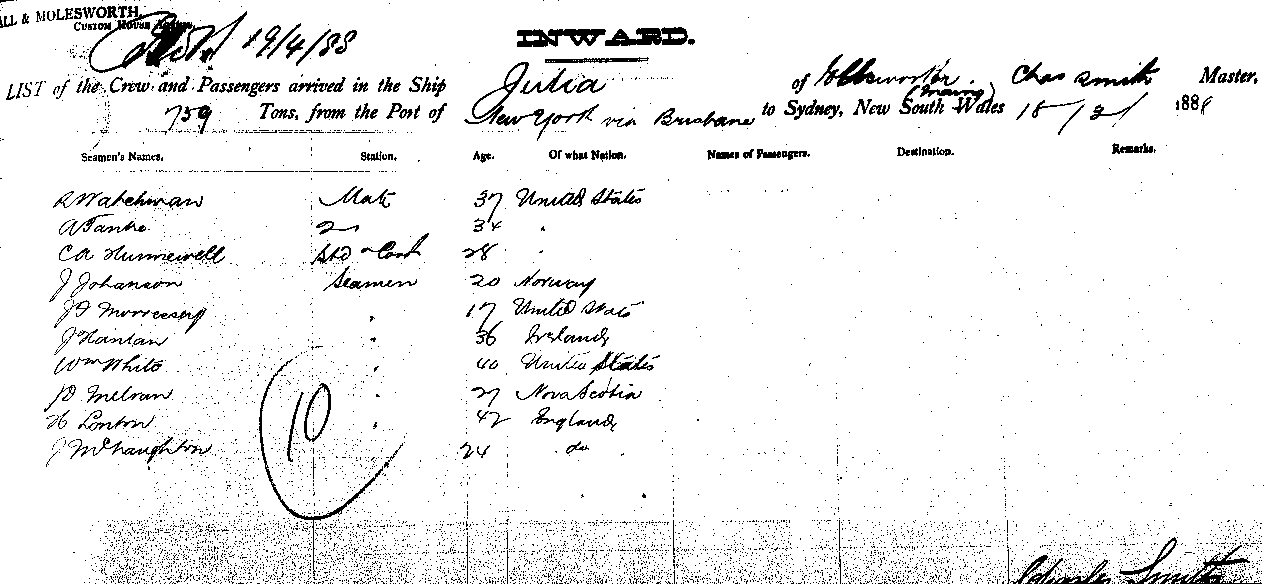 ALL & MOLESWORTH,
CUSTOM HOUSE AGENTS.
19/4/88
INWARD.
LIST of the Crew and Passengers arrived in the Ship Julia of Ellsworth (Maine) Chas Smith Master,
759 Tons, from the Port of New York via Brisbane to Sydney, New South Wales 18/3/ 188
Seamen's Names. Station. Age. Of what Nation. Names of Passengers. Destination. Remarks.
Watchman Mate 37 United States
A 2 34 "
CA Hunnewell Std & Cook 28 "
J Johanson Seamen 20 Norway
JD " 17 United States
J Hanlan " 36 Ireland
Wm White " 40 United States
D " 27 Nova Scotia
H Lonton " 42 England
J McNaughton 24 do
10
Charles Smith